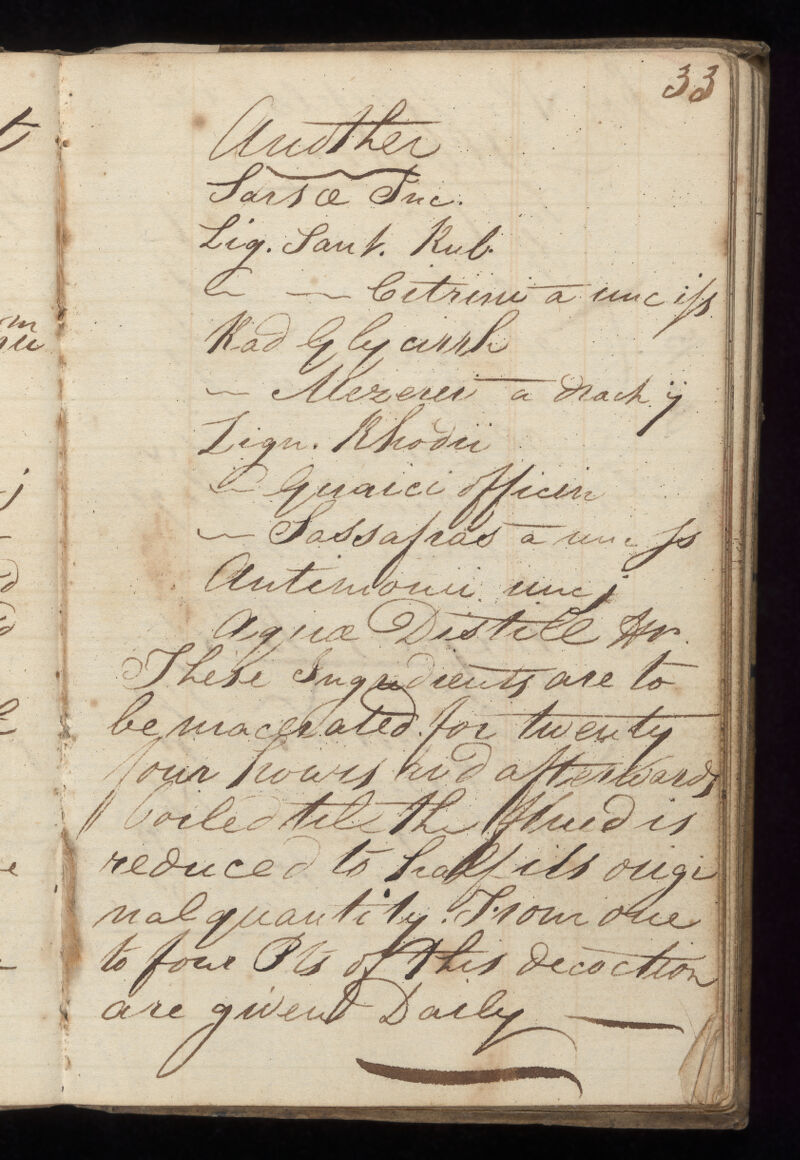 33
Another
Sarsæ Inc.
Lig. Sant. Rub.
" — Citrini a unc iſs
Rad Glycirrh
— Mezerei a drach ij
Lign. Rhodii
— Guaici officin
— Sassafras a unc ſs
Antimonii unc j
Aquæ Distill
These Ingredients are to
be macerated for twenty
four hours and afterwards
boiled till the fluid is
reduced to half its origi
nal quantity. From one
to four Pts of this decoction
are given Daily —